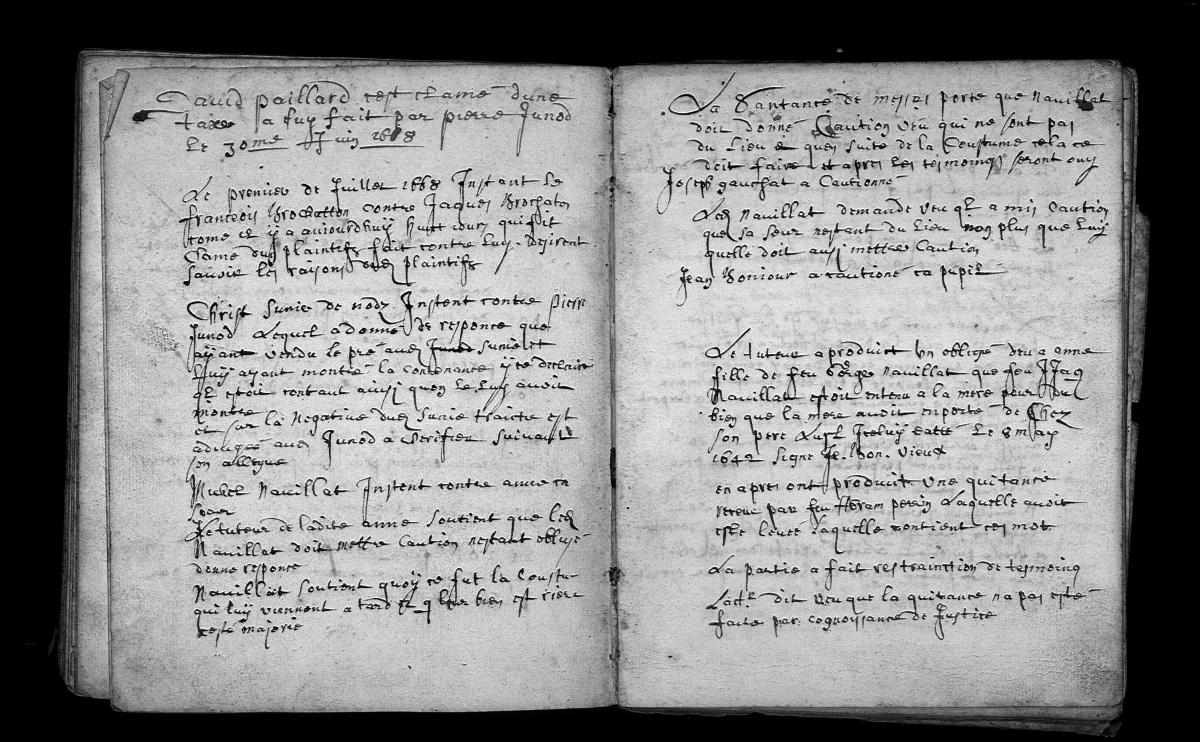 David paillard cest clamé dune
taxe a luy fait par pierre Junod
le 30me Juin 1668
Le premier de Juillet 1668 Instant le
francois Brochatton contre Jaques Brochaton
come il y a aujourdhuy huict jours qui fit
Clame dud plaintifs fait contre luy. desirent
savoir les raisons dud plaintifs
Christ Sunier de nodz Instent contre pierre
Junod Lequel a donné de responce que
ayant vendu le pré aud Junod Sunier et
luy ayant montré la contenance
ql estoit contant ainsi quon le luy avoit
montré
et sur la Negative dud Sunier traicte est
adjugé aud Junod a verifier suivant
son allegue
Michel Navillat Instent contre anne sa
soeur
Le tuteur de ladite anne soutient que led
Navillat doit mettre Caution nestant obligé
donne responce
Navillat soutient quoy ce fut la Coustu
qui luy viennent a tard et q leur bien est riere
ceste majorie
La Santance de messrs porte que Navillat
doit donné Caution veu qui ne sont pas
du Lieu et quen suite de la Coustume cela ce
doit faire et apres les tesmoings seront ouy
Joseph gauchat a Cautionné
Led Navillat demande veu ql a mis Caution
que sa seur nestant du Lieu non plus que luy
quelle doit aussi mettre Caution
Jean Bonjour a cautioné sa pupile
Le tuteur a produict un obligé deu a anne
fille de feu Navillat que feu Jaq
Navillat estoit entenu a la mere pour du
bien que la mere avoit enporté de Chez
son pere Iceluy datté le 8 may
1642 signé Je. Bon. vieux
en apres ont produit une quitance
receue par feu Abram perrin Laquelle avoit
este levee Laquelle contient ces mot
La partie a fait restrainction de tesmoing
Lact. dit veu que la quitance na pas esté
faite par cognoissance de Justice